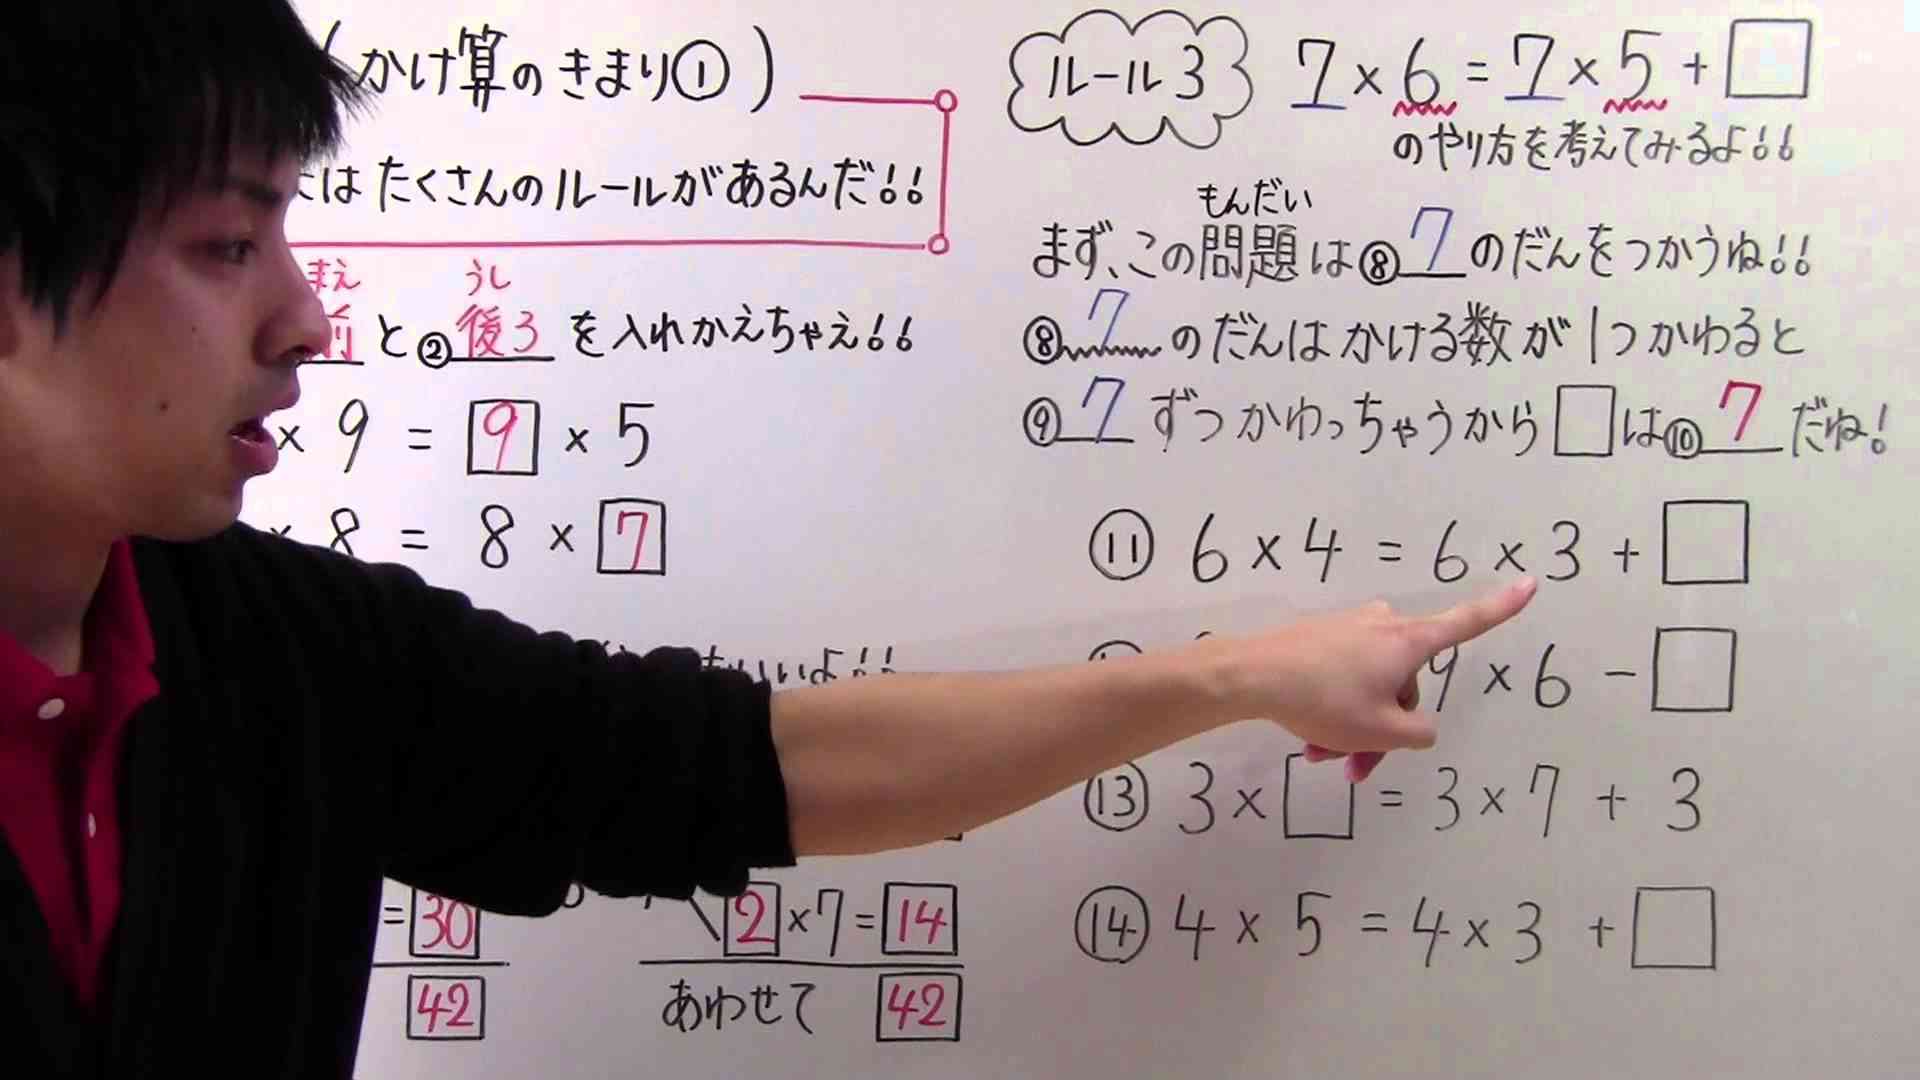 (かけ算のきまり①)
はたくさんのルールがあるんだ!!
まえ うし
前と②後ろを入れかえちゃえ!!
× 9 = 9 × 5
× 8 = 8 × 7
いいよ!!
= 30
42
2 × 7 = 14
あわせて 42
ルール3 7 × 6 = 7 × 5 + □
のやり方を考えてみるよ!!
もんだい
まず、この問題は⑧7のだんをつかうね!!
⑧7のだんはかける数が1つかわると
⑨7ずつかわっちゃうから□は⑩7だね!
⑪ 6 × 4 = 6 × 3 + □
9 × 6 - □
⑬ 3 × □ = 3 × 7 + 3
⑭ 4 × 5 = 4 × 3 + □